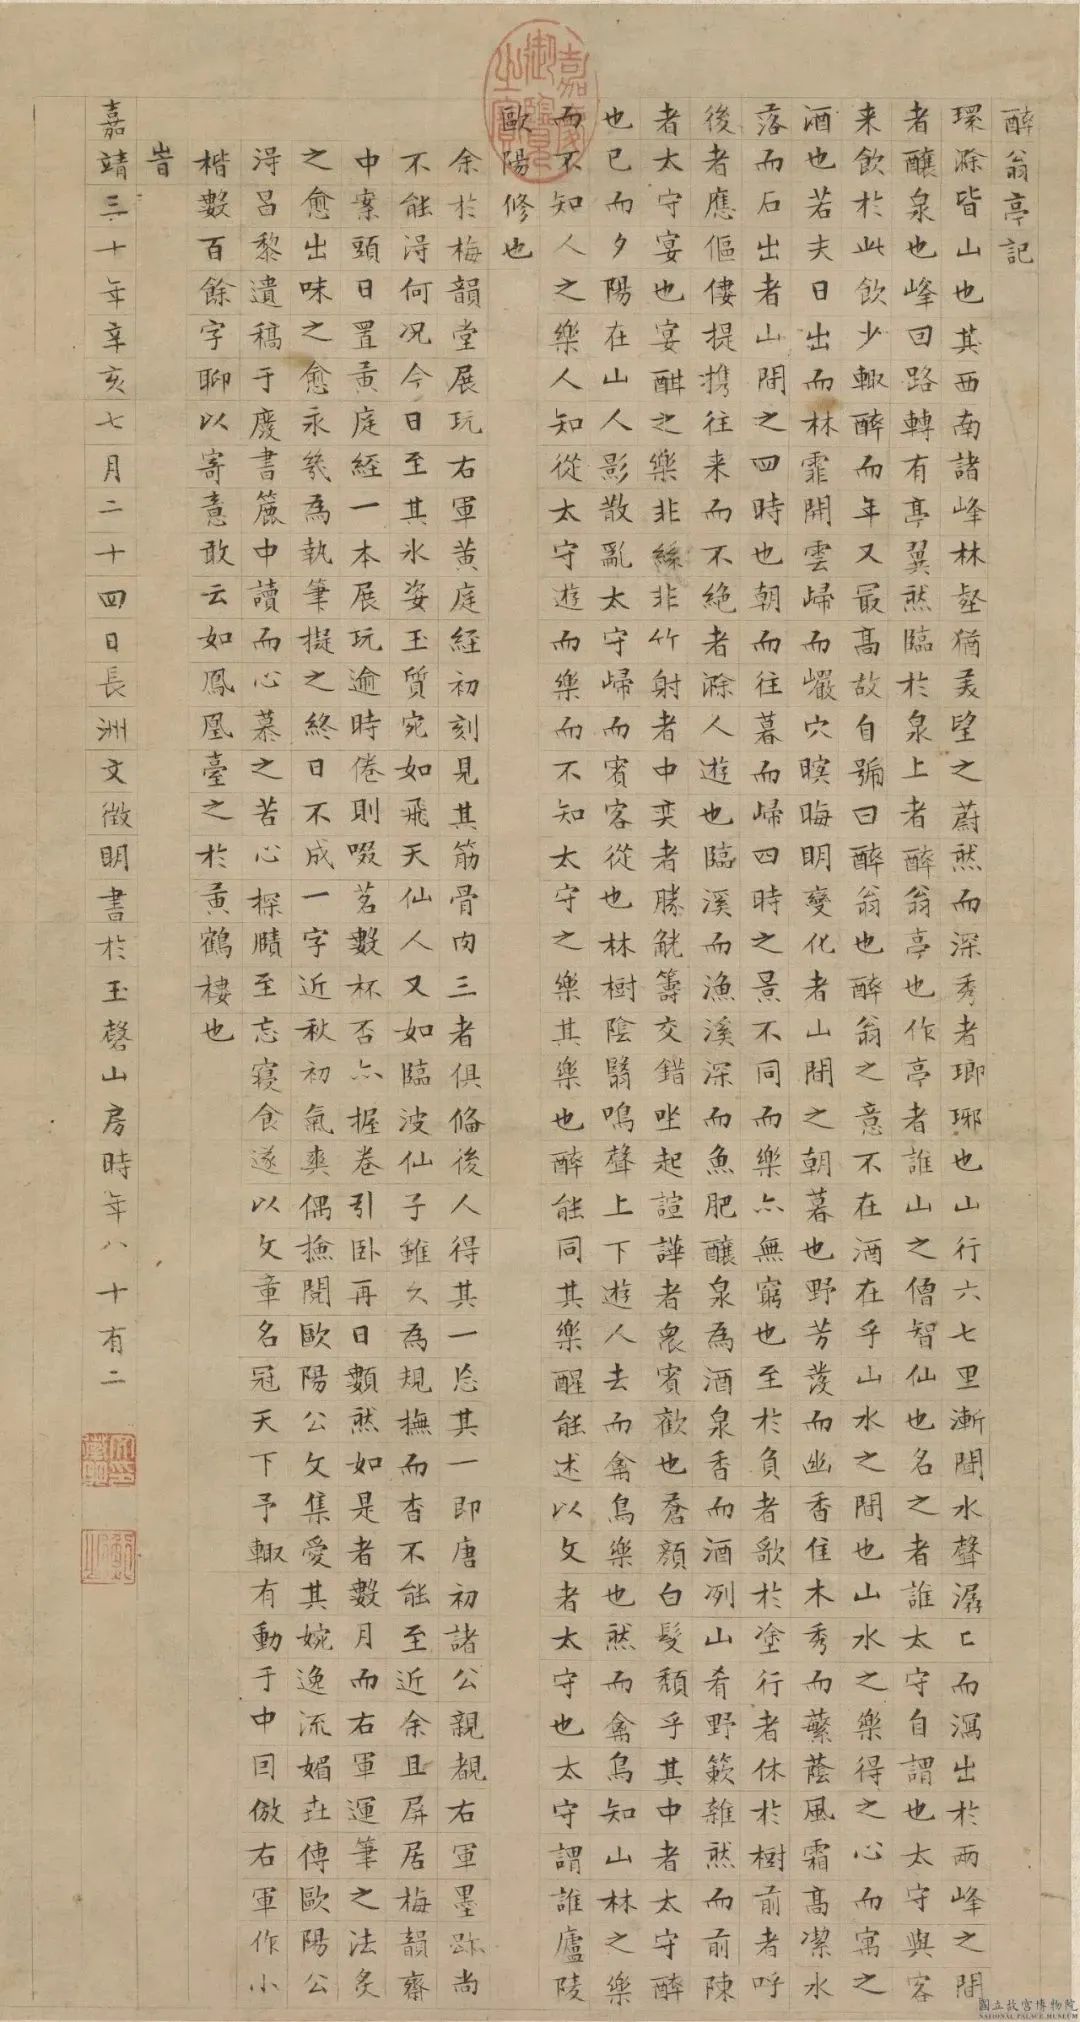 醉翁亭記
環滁皆山也其西南諸峰林壑猶美望之蔚然而深秀者瑯琊也山行六七里漸聞水聲潺〻而瀉出於兩峰之間
者釀泉也峰回路轉有亭翼然臨於泉上者醉翁亭也作亭者誰山之僧智仙也名之者誰太守自謂也太守與客
来飲於此飲少輙醉而年又最高故自號曰醉翁也醉翁之意不在酒在乎山水之間也山水之樂得之心而寓之
酒也若夫日出而林霏開雲歸而巖穴暝晦明變化者山間之朝暮也野芳發而幽香佳木秀而蘩蔭風霜高潔水
落而石出者山間之四時也朝而往暮而歸四時之景不同而樂亦無窮也至於負者歌於塗行者休於樹前者呼
後者應傴僂提攜往来而不絶者滁人遊也臨溪而漁溪深而魚肥釀泉為酒泉香而酒冽山肴野蔌雜然而前陳
者太守宴也宴酣之樂非絲非竹射者中奕者勝觥籌交錯坐起諠譁者衆賓歡也蒼顏白髮頹乎其中者太守醉
也已而夕陽在山人影散亂太守歸而賓客從也林樹陰翳鳴聲上下遊人去而禽鳥樂也然而禽鳥知山林之樂
而不知人之樂人知從太守遊而樂而不知太守之樂其樂也醉能同其樂醒能述以文者太守也太守謂誰廬陵
歐陽修也
余於梅韻堂展玩右軍黄庭經初刻見其筋骨肉三者俱俻後人得其一忘其一即唐初諸公親覩右軍墨跡尚
不能淂何况今日至其氷姿玉質宛如飛天仙人又如臨波仙子雖久為規撫而杳不能至近余且屏居梅韻齋
中案頭日置黄庭經一本展玩逾時倦則啜茗數杯否亦握卷引卧再日數然如是者數月而右軍運筆之法炙
之愈出味之愈永幾為執筆擬之終日不成一字近秋初氣爽偶撿閱歐陽公文集愛其婉逸流媚且傳歐陽公
淂呂黎遺稿于廢書簏中讀而心慕之苦心探賾至忘寢食遂以文章名冠天下予輙有動于中囙倣右軍作小
楷數百餘字聊以寄意敢云如鳳凰臺之於黄鶴樓也
旹
嘉靖三十年辛亥七月二十四日長洲文徵明書於玉磬山房時年八十有二
嘉慶御覽之寶
國立故宮博物院
NATIONAL PALACE MUSEUM